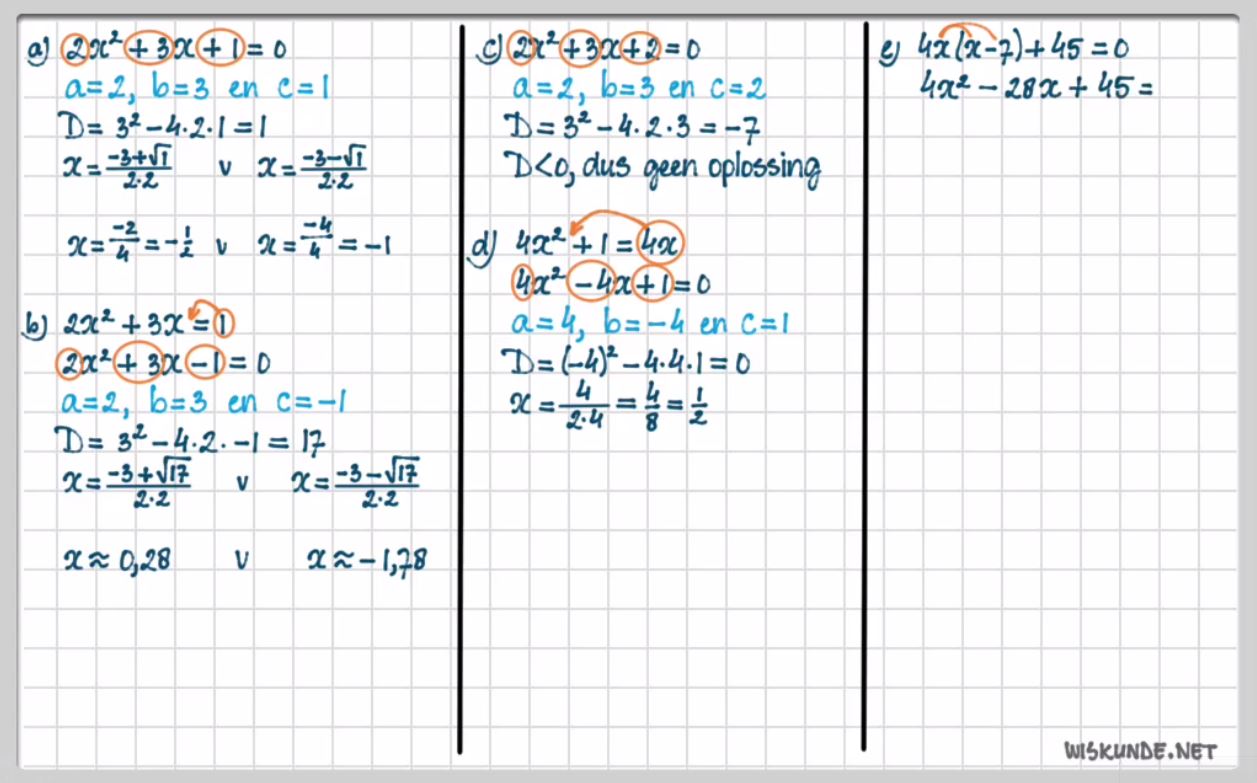 a) 2x² + 3x + 1 = 0
a=2, b=3 en c=1
D= 3² - 4·2·1 = 1
x = (-3+√1)/(2·2) v x = (-3-√1)/(2·2)
x = -2/4 = -1/2 v x = -4/4 = -1
b) 2x² + 3x = 1
2x² + 3x - 1 = 0
a=2, b=3 en c=-1
D= 3² - 4·2·-1 = 17
x = (-3+√17)/(2·2) v x = (-3-√17)/(2·2)
x ≈ 0,28 v x ≈ -1,78
c) 2x² + 3x + 2 = 0
a=2, b=3 en c=2
D= 3² - 4·2·3 = -7
D<0, dus geen oplossing
d) 4x² + 1 = 4x
4x² - 4x + 1 = 0
a=4, b=-4 en c=1
D= (-4)² - 4·4·1 = 0
x = 4/(2·4) = 4/8 = 1/2
e) 4x(x-7) + 45 = 0
4x² - 28x + 45 =
WISKUNDE.NET